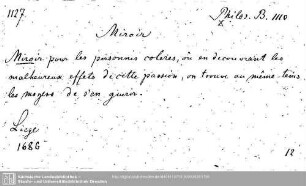 1127.
Philos. B. 1110
Miroir
Miroir pour les personnes coleres, où en decouvrant les
malheureux effets de cette passion, on trouve au même tems
les moyens de s'en guerir.
Liege
1686
12